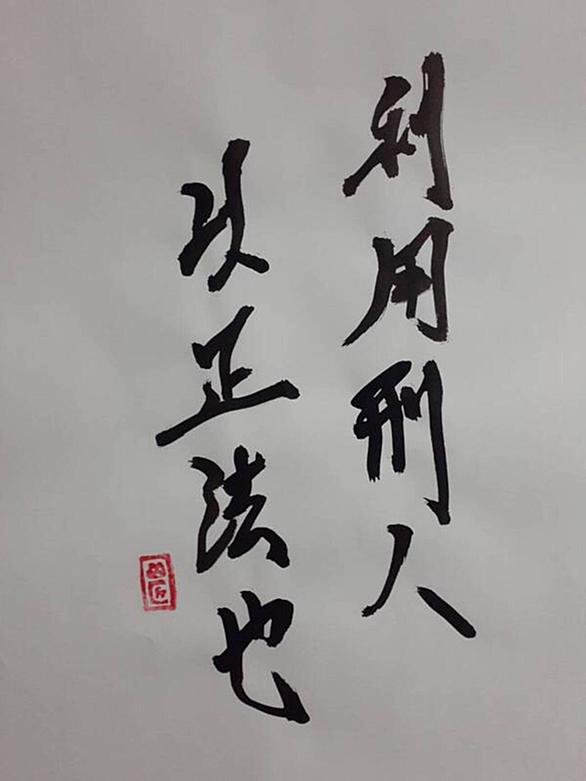 利用刑人
以正法也